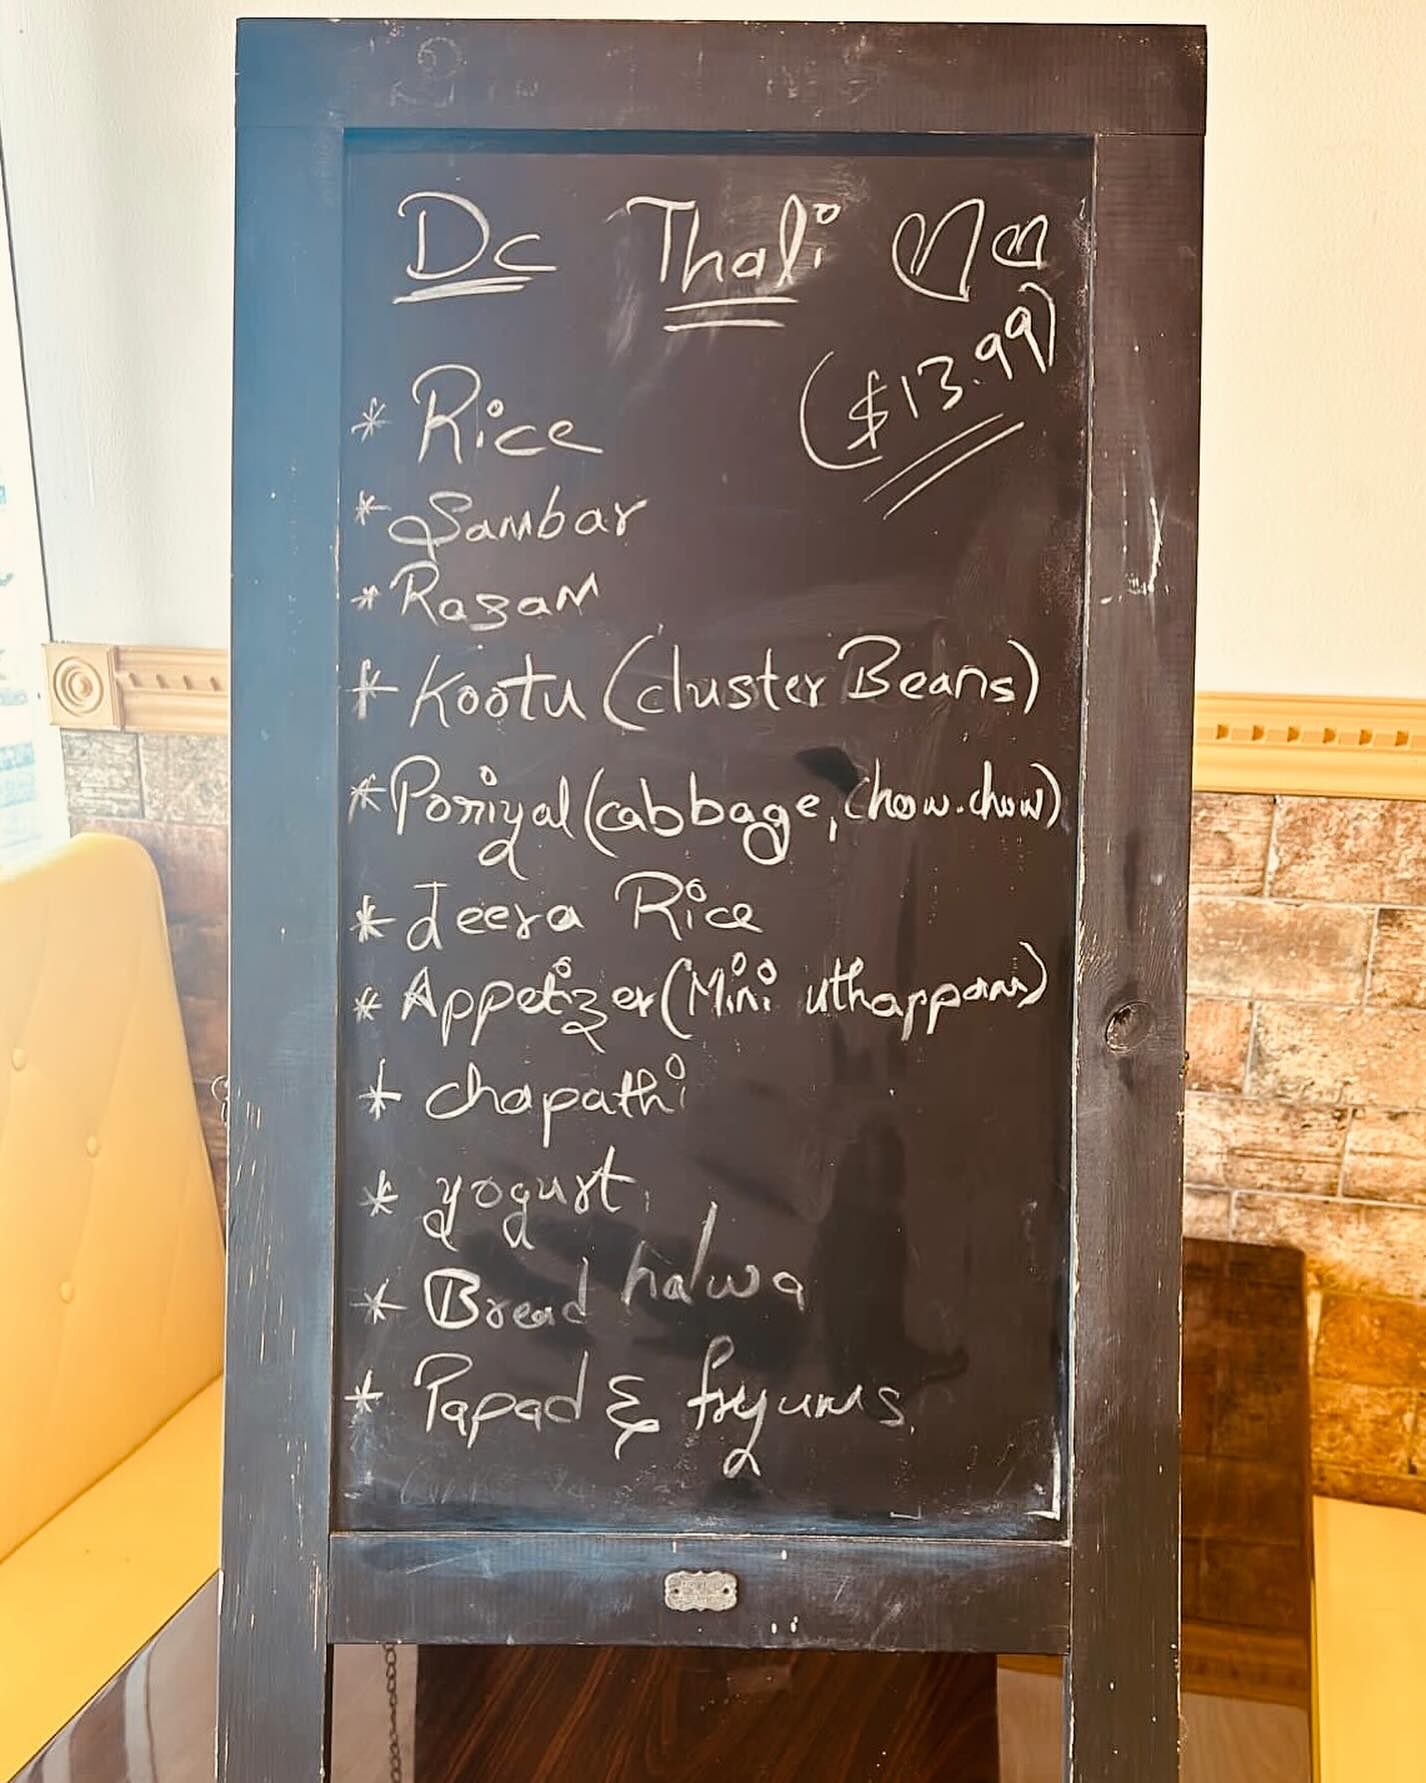 Dc Thali
($13.99)
* Rice
* Sambar
* Rasam
* Kootu (cluster Beans)
* Poriyal (cabbage, chow.chow)
* Jeera Rice
* Appetizer (Mini uthappam)
* chapathi
* yogurt
* Bread halwa
* Papad & fryums